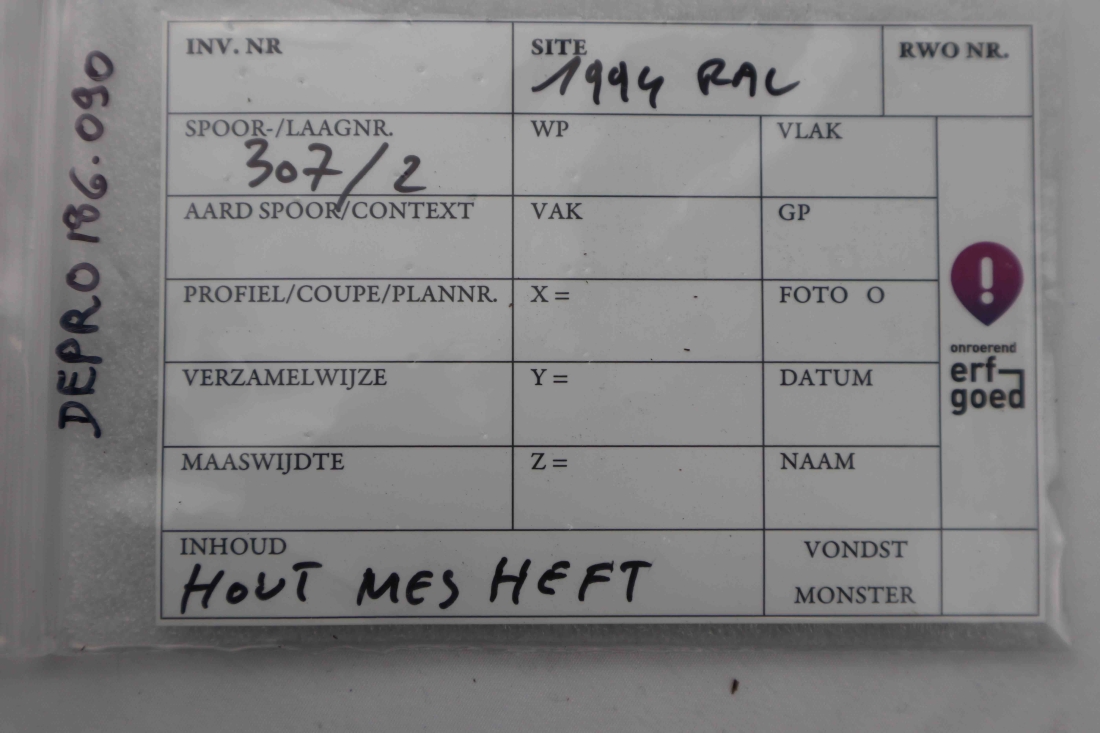 DEPRO186.090
INV. NR
SITE
RWO NR.
1994 RAL
SPOOR-/LAAGNR.
WP
VLAK
307/2
AARD SPOOR/CONTEXT
VAK
GP
PROFIEL/COUPE/PLANNR.
X =
FOTO O
VERZAMELWIJZE
Y =
DATUM
onroerend
erf-
goed
MAASWIJDTE
Z =
NAAM
INHOUD
VONDST
HOUT MES HEFT
MONSTER